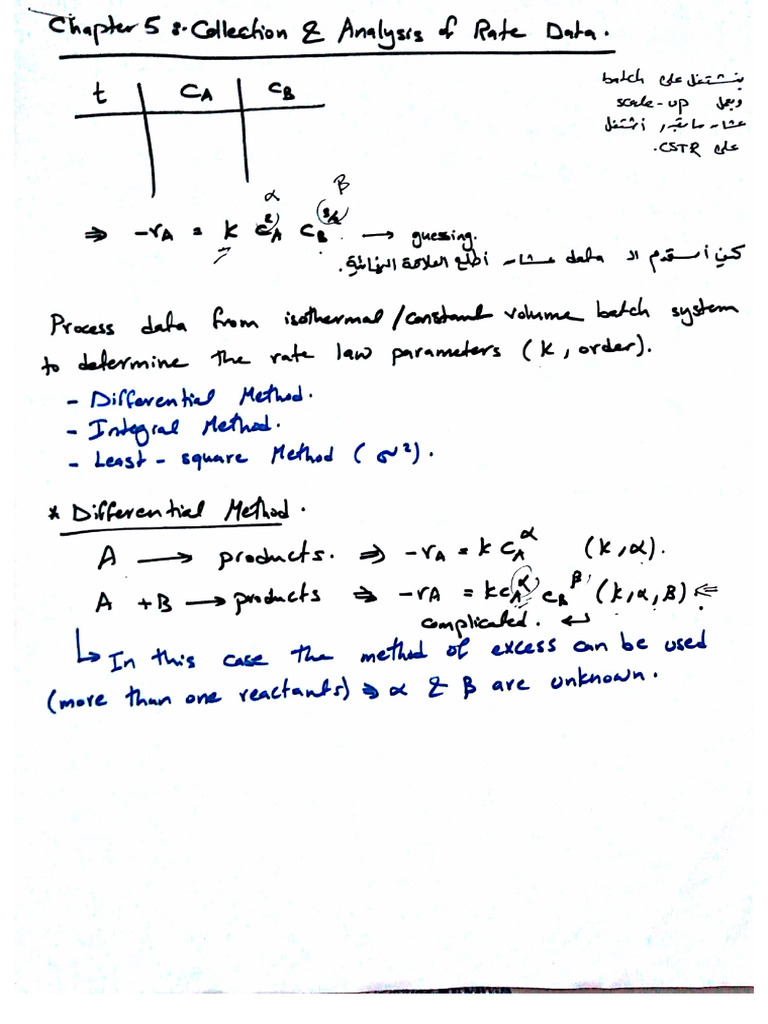 Chapter 5 :- Collection & Analysis of Rate Data.
t | CA | CB
بنشتغل على batch
ونعمل scale-up
عشان ما نقدر أشتغل
على CSTR.
α β
⇒ -rA = k CA^(2) CB^(3/2) → guessing.
كيف أستخدم الـ data عشان أطلع العلاقة النهائية.
Process data from isothermal / constant volume batch system
to determine the rate law parameters (k, order).
- Differential Method.
- Integral Method.
- Least - square Method (σ²).
* Differential Method.
A → products. ⇒ -rA = k CA^α (k, α).
A + B → products ⇒ -rA = k CA^α CB^β (k, α, β) ⇐
complicated. ↵
↳ In this case the method of excess can be used
(more than one reactants) ⇒ α & β are unknown.